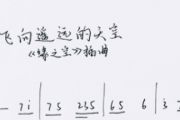 飞向遥远的天空
《缘之空》插曲
- 7 i | 7 5 235 | 65 6 | 3